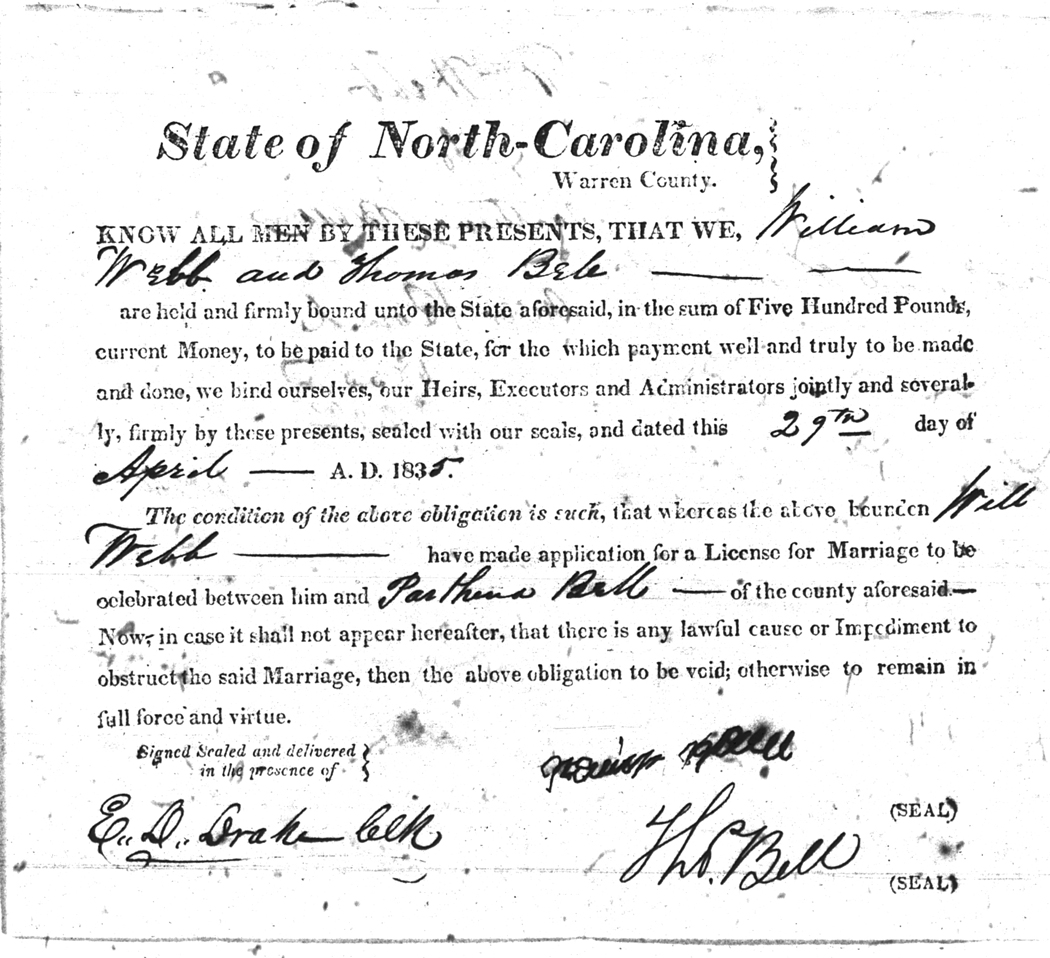 State of North-Carolina,
Warren County.
KNOW ALL MEN BY THESE PRESENTS, THAT WE, William
Webb and Thomas Bell
are held and firmly bound unto the State aforesaid, in the sum of Five Hundred Pounds,
current Money, to be paid to the State, for the which payment well and truly to be made
and done, we bind ourselves, our Heirs, Executors and Administrators jointly and several-
ly, firmly by these presents, sealed with our seals, and dated this 29th day of
April — A. D. 1835.
The condition of the above obligation is such, that whereas the above bounden Will
Webb — have made application for a License for Marriage to be
celebrated between him and Parthena Bell — of the county aforesaid.—
Now, in case it shall not appear hereafter, that there is any lawful cause or Impediment to
obstruct the said Marriage, then the above obligation to be void; otherwise to remain in
full force and virtue.
Signed Sealed and delivered
in the presence of
(SEAL)
E. D. Drake Clk
Tho. Bell
(SEAL)